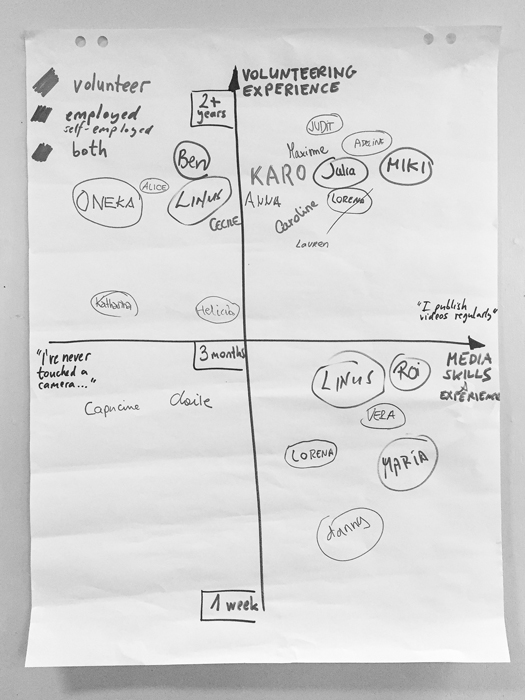 volunteer
employed
self-employed
both
VOLUNTEERING
EXPERIENCE
2+
years
JUDIT
Maxime
ADELINE
Ben
KARO
Julia
MIKI
ONEKA
ALICE
LINUS
ANNA
LORENA
CECILE
Caroline
Lauren
Katharina
Felicia
"I publish
videos regularly"
"I've never
touched a
camera..."
3 months
MEDIA
SKILLS
EXPERIENCE
LINUS
ROI
Capucine
VERA
LORENA
MARÍA
danny
1 week